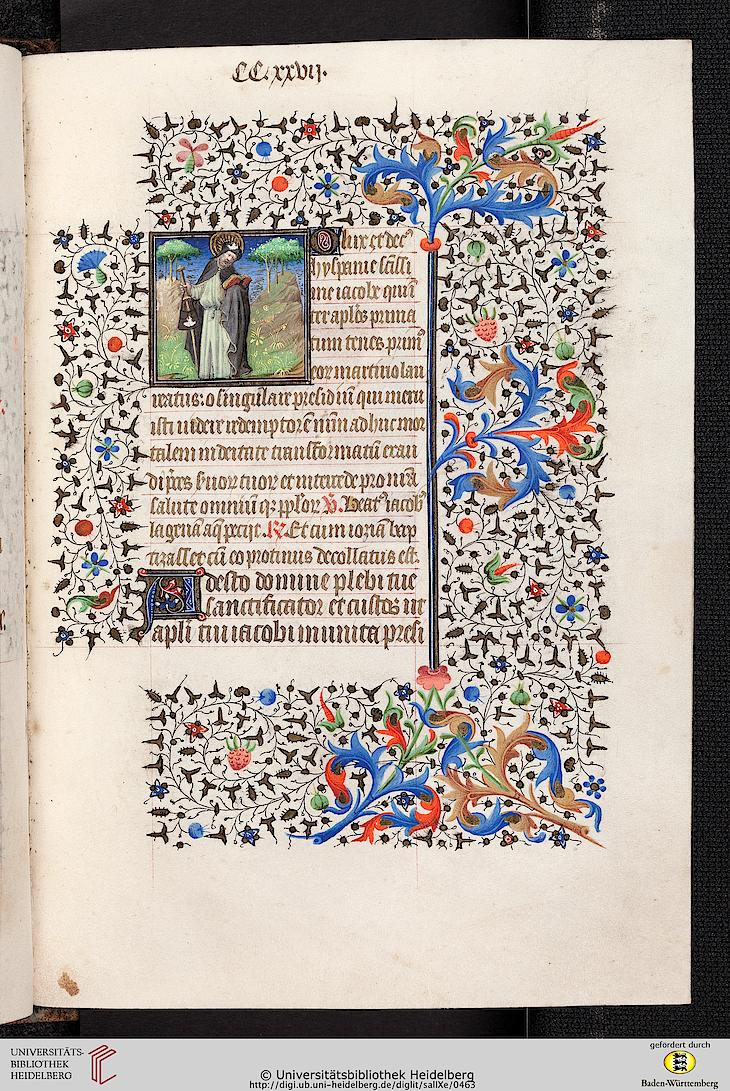 CC.xxvij.
O lux et dec9
hyspanie sc̃issi
me iacobe qui ĩ
ter apl̃os prima
tum tenes prim9
eor martirio lau
reatus: o singulare presidiũ qui meru
isti videre redemptorẽ nr̃m adhuc mor
talem in deitate transformatũ exau
di p̃ces seruor tuor et intercede pro nr̃a
salute omniũ q3 pplor V. Beat9 iacob9
lagenã aq̃ petijt. R. Et cum ioriã bap
tizasset cũ eo protinus decollatus est.
Adesto domine plebi tue
sanctificator et custos ut
apli tui iacobi munita presi
UNIVERSITÄTS-
BIBLIOTHEK
HEIDELBERG
© Universitätsbibliothek Heidelberg
http://digi.ub.uni-heidelberg.de/diglit/salIXe/0463
gefördert durch
Baden-Württemberg